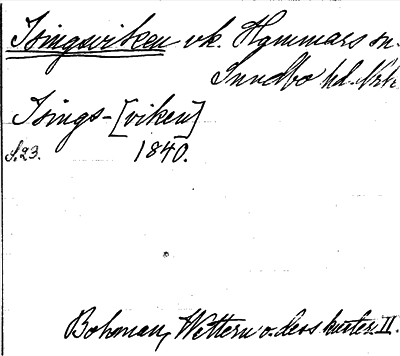 Isingsviken vk. Hammars sn.
Sundbo hd. Nrk
Isings-[viken]
s. 23. 1840.
Bohman, Wettern o. dess kuster. II.